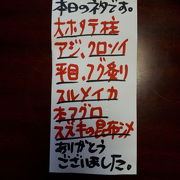 本日のネタです。
大ホタテ柱
アジ、クロソイ
平目、フグ炙り
スルメイカ
本マグロ
スズキの昆布ジメ
ありがとう
ございました。